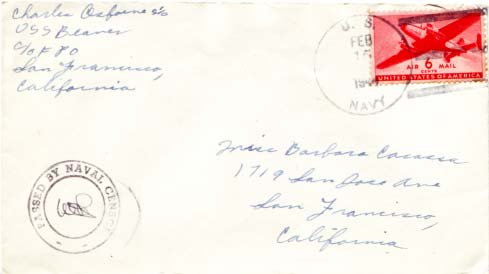 Charles Osborne
USS Beaver
c/o F P O
San Francisco,
California
U. S.
FEB
NAVY
AIR 6 MAIL
CENTS
UNITED STATES OF AMERICA
Miss Barbara
1719 San Jose Ave
San Francisco,
California
PASSED BY NAVAL CENSOR